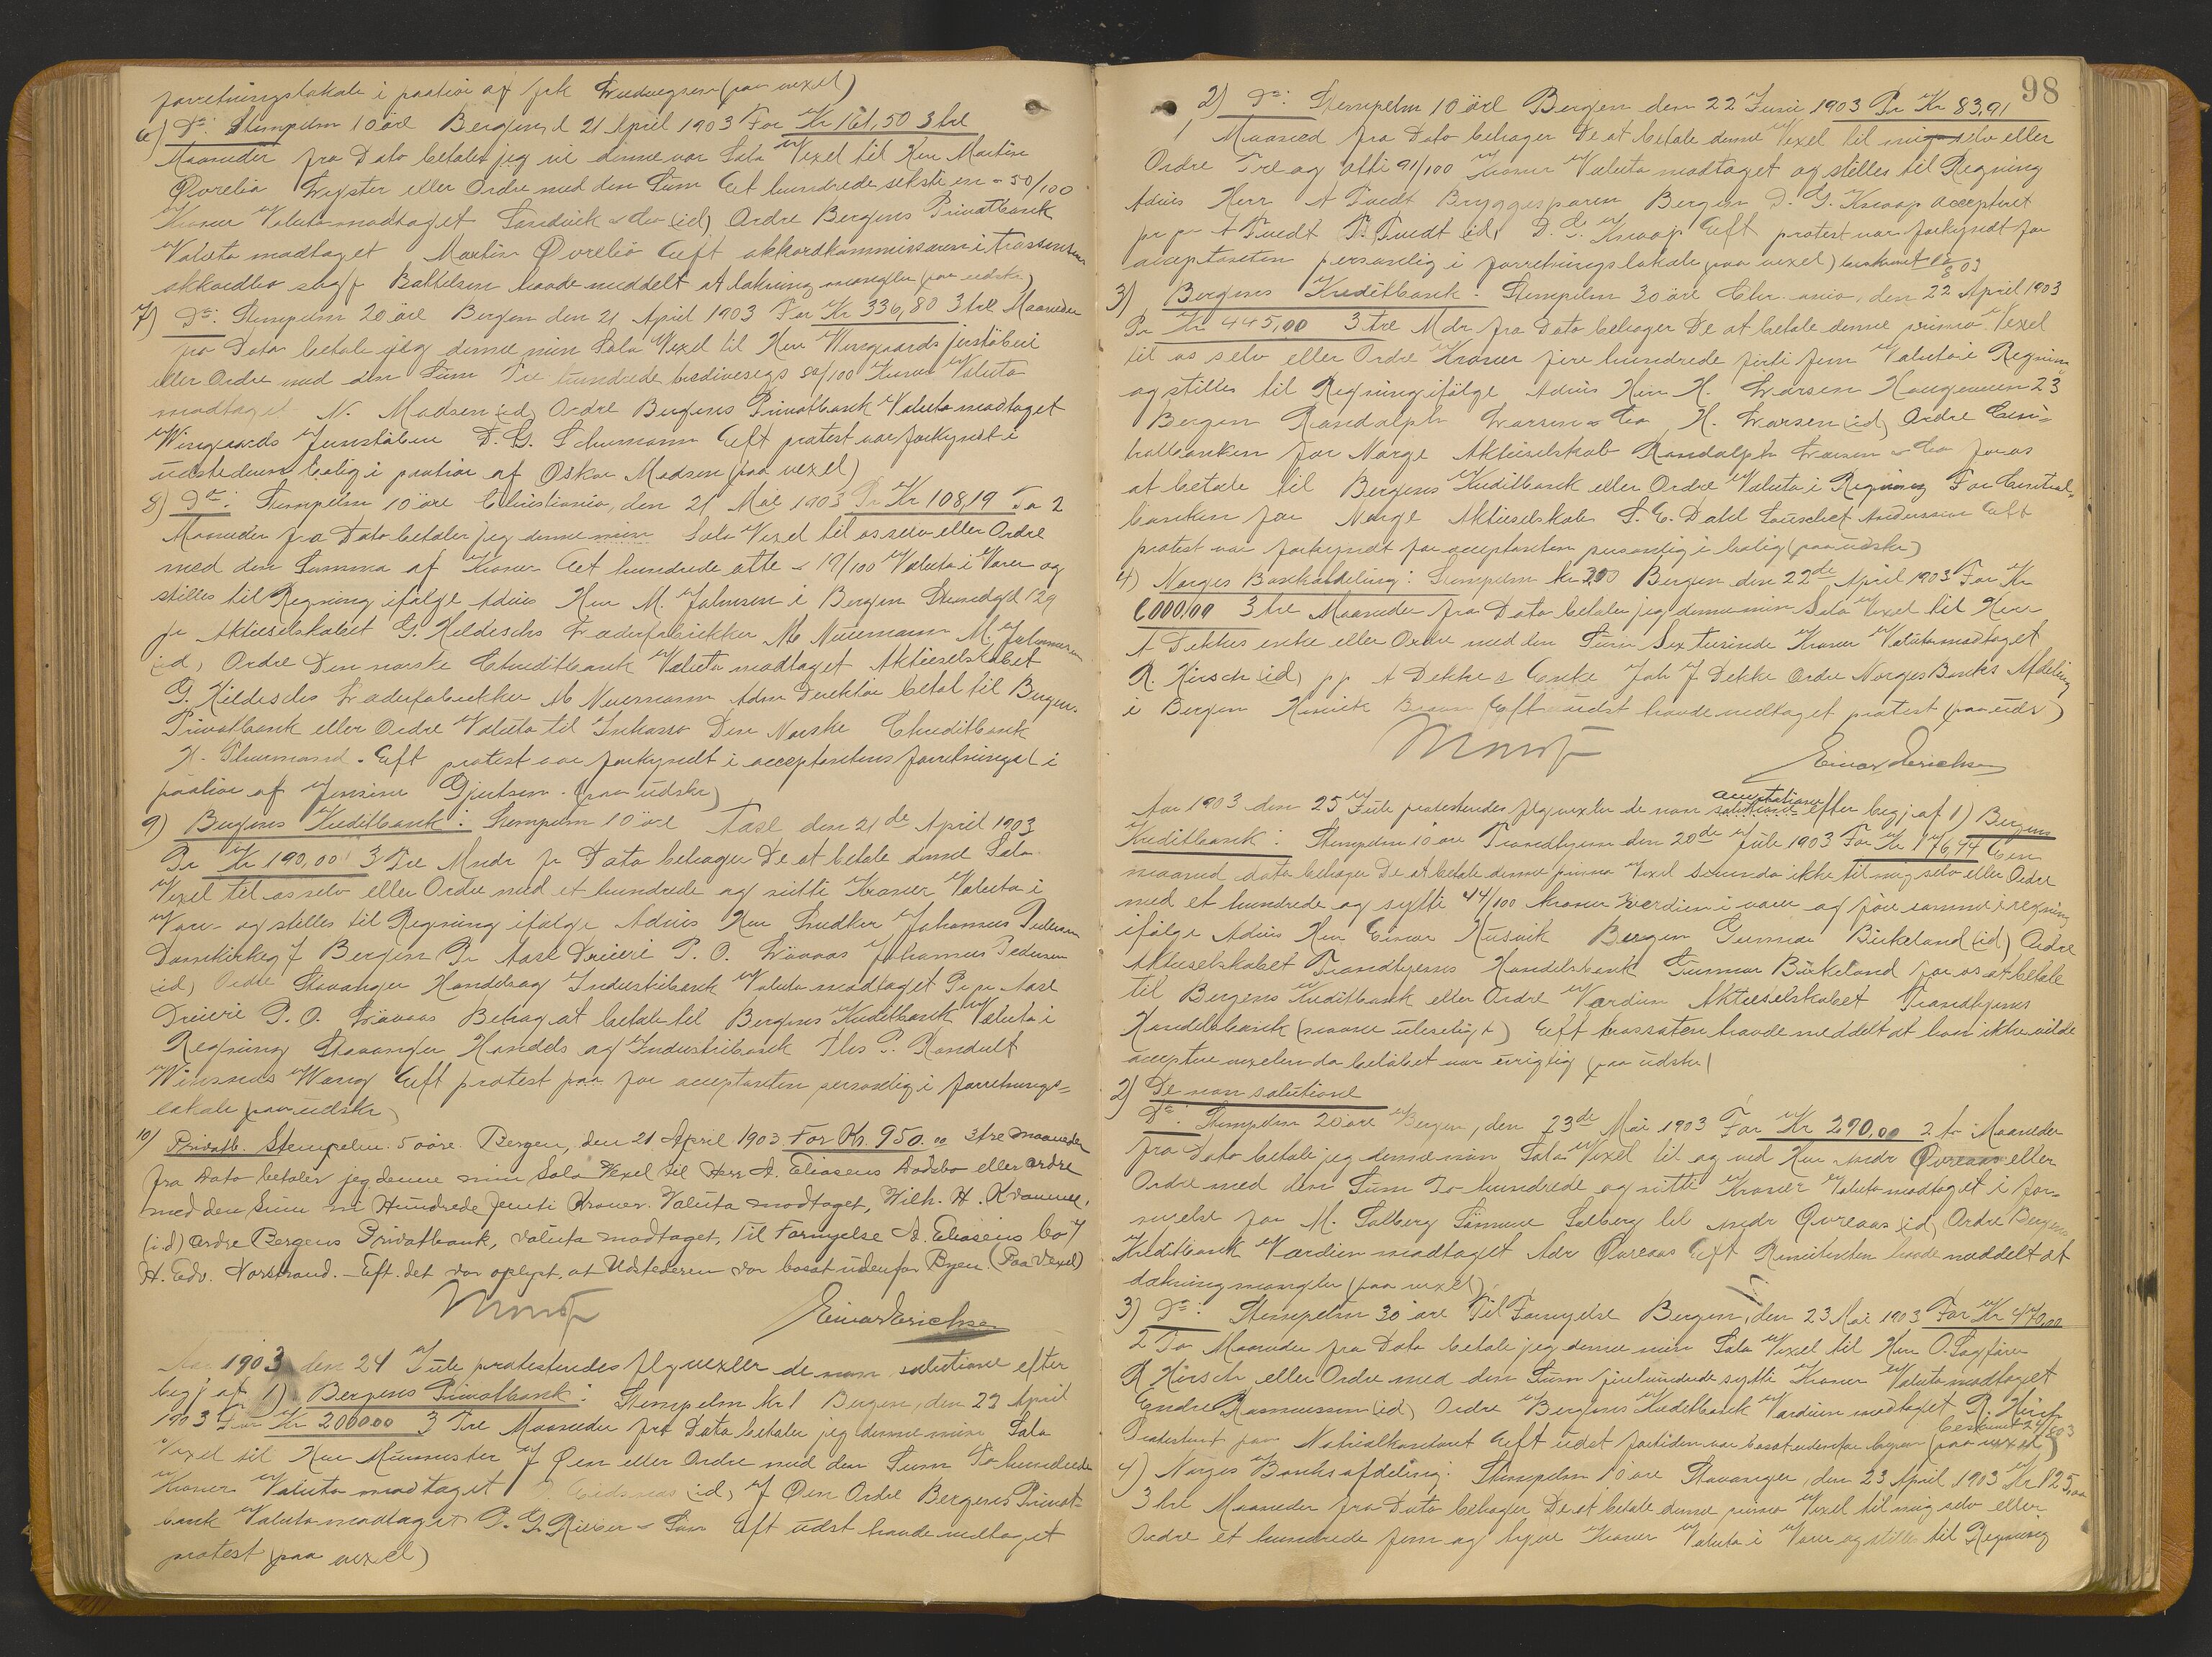 forretningslokale i paahør af frk Ludvigsen (paa vexel)
6) Do: Stempelm 10 öre Bergen, d 21 April 1903 For Kr 161,50 3 tre
Maaneder fra Dato betaler jeg denne vor Sola Vexel til Herr Martin
Øvrebø eller Ordre med den Sum Et hundrede seksti en - 50/100
Kroner Valuta modtaget Sandvik & Co (id) Ordre Bergens Privatbank
Valuta modtaget Martin Øvrebø Eft akkordkommissæren i
akkordbo sagf Battelsen havde meddelt at dækning mangler (paa udskr)
7) Do: Stempelm 20 öre Bergen den 21 April 1903 For Kr 336,80 3 tre Maaneder
fra Dato betaler jeg denne min Sola Vexel til Herr Wingaards jernstöberi
eller Ordre med den Sum Tre hundrede tredivesegs 80/100 Kroner Valuta
modtaget N. Madsen (id) Ordre Bergens Privatbank Valuta modtaget
Wingaards Jernstöberi D. G. Schumann Eft protest var forkyndt i
udstederens bolig i paahør af Oskar Madsen (paa vexel)
8) Do: Stempelm 10 öre Christiania, den 21 Mai 1903 Pr Kr 108,19 To 2
Maaneder fra Dato betaler jeg denne min Sola Vexel til os selv eller Ordre
med den Summa af Kroner Et hundrede otte & 19/100 Valuta i Varer og
stilles til Regning ifølge Advis Herr M. Johnsen i Bergen Strandgd 129
pr Aktieselskabet G. Hildisches Læderfabrikker M Neumann M. Johnsen
(id) Ordre Den norske Creditbank Valuta modtaget Aktieselskabet
G. Hildisches Læderfabrikker M Neumann Adm Direktör betal til Bergens
Privatbank eller Ordre Valuta til Inkasso Den Norske Creditbank
H. Thurmand. Eft protest var forkyndt i acceptantens forretningsl i
paahør af Jensine Gjertsen. (paa udskr)
9) Bergens Kreditbank: Stempelm 10 öre Aasl den 21 de April 1903
Pr Kr 190,00 3 Tre Mndr fr Dato behager De at betale denne Sola
Vexel til os selv eller Ordre med et hundrede og nitti Kroner Valuta i
Varer og stilles til Regning ifølge Advis Herr Snedker Johannes Pedersen
Domkirkeg 7 Bergen Pr Aasl Drueri P. O. Lövaas Johannes Pedersen
(id) Ordre Stavanger Handels og Industribank Valuta modtaget Pr pr Aasl
Drueri P. O. Lövaas Behag at betale til Bergens Kreditbank Valuta i
Regning Stavanger Handels og Industribank Ths P. Randult
Winsnes Wang Eft protest paa for acceptanten personlig i forretnings=
lokale (paa udskr)
10) Privatb. Stempelm. 50 öre. Bergen, den 21 April 1903 For Kr. 950.00 3 tre Maaneder
fra Dato betaler jeg denne min Sola Vexel til Herr A. Eliasens Dødsbo eller ordre
med den Sum ni Hundrede femti Kroner. Valuta modtaget, Wilh. H. Kramer,
(i.d) ordre Bergens Privatbank, valuta modtaget, Til Fornyelse A. Eliasens bo
H. Edv. Norstrand. - Eft. det var oplyst, at Udstederen var bosat udenfor Byen. (Paa Vexel)
Einar Erichsen
Aar 1903 den 24 Juli protesteredes flg vexler de non solutione efter
begj af 1) Bergens Privatbank: Stempelm Kr 1 Bergen, den 23 April
1903 For Kr 200000 3 Tre Maaneder fra Dato betaler jeg denne min Sola
Vexel til Herr Murmester J Øen eller Ordre med den Sum To hundrede
Kroner Valuta modtaget (id) J Øen Ordre Bergens Privat=
bank Valuta modtaget P. G. Rieber & Sön Eft udst havde vedtaget
protest (paa vexel)
98
2) Do: Stempelm 10 öre Bergen den 22 Juni 1903 Pr Kr 83,91
1 Maaned fra Dato behager De at betale denne Vexel til mig selv eller
Ordre Tre og otti 91/100 Kroner Valuta modtaget og stilles til Regning
Advis Herr A Tvedt Bryggesporen Bergen D. G. Knoop accepteret
pr pr A Tvedt T. Tvedt (id) D. G. Knoop Eft protest var forkyndt for
acceptanten personlig i forretningslokale (paa vexel)
3) Bergens Kreditbank. Stempelm 30 öre Chr.ania, den 22 April 1903
Pr Kr 445,00 3 tre Mdr fra Dato behager De at betale denne prima Vexel
til os selv eller Ordre Kroner fire hundrede förti fem Valuta i Regning
og stilles til Regning ifölge Advis Herr H. Larsen Haugeveien 23
Bergen Randolph Larsen & Co, H. Larsen (id) Ordre Cen=
tralbanken for Norge Aktieselskab Randolph Larsen & Co for os
at betale til Bergens Kreditbank eller Ordre Valuta i Regning For Central
banken for Norge Aktieselskab S. E. Dahl Andersen Eft
protest var forkyndt for acceptanten personlig i bolig (paa udskr)
4) Norges Bankafdeling: Stempelm kr 3,00 Bergen den 22de April 1903 For Kr
6000,00 3 tre Maaneder fra Dato betaler jeg denne min Sola Vexel til Herr
A Dekkes enke eller Ordre med den Sum Sex tusinde Kroner Valuta modtaget
R. Hirsch (id) pp A Dekkes Enke Joh J Dekke Ordre Norges Banks Afdeling
i Bergen Henrik Eft udst havde vedtaget protest (paa uds)
Einar Erichsen
Aar 1903 den 25 Juli protesteredes flg vexler de non acceptatione efter begj af 1) Bergens
Kreditbank: Stempelm 10 öre Trondhjem den 20de Juli 1903 For Kr 176,44 Een
maaned dato behager De at betale denne prima Vexel secunda ikke til mig selv eller Ordre
med et hundrede og sytti 44/100 kroner Værdien i varer og före samme i regning
ifölge Advis Herr Einar Husvik Bergen Gunnar Birkeland (id) Ordre
Aktieselskabet Trondhjems Handelsbank Gunnar Birkeland for os at betale
til Bergens Kreditbank eller Ordre Værdien Aktieselskabet Trondhjems
Handelsbank (navne uleseligt) Eft trassaten havde meddelt at han ikke vilde
acceptere vexelen da belöbet var urigtig (paa udskr)
2) De non solutione
Do: Stempelm 20 öre Bergen, den 23de Mai 1903 For Kr 290,00 2 to Maaneder
fra Dato betaler jeg denne min Sola Vexel til og ved Herr Andr Øvreaas eller
Ordre med den Sum To hundrede og nitti Kroner Valuta modtaget i for-
nyelse for M. Solberg Simene Solberg til Andr Øvreaas (id) Ordre Bergens
Kreditbank Værdien modtaget Adr Øvreaas Eft Remittenten havde meddelt at
dækning mangler (paa vexel)
3) Do: Stempelm 30 öre Til Fornyelse Bergen, den 23 Mai 1903 For Kr 470,00
2 To Maaneder fra Dato betaler jeg denne min Sola Vexel til Herr O. Sagförer
R Hirsch eller Ordre med den Sum firehundrede sytti Kroner Valuta modtaget
Endre Rasmussen (id) Ordre Bergens Kreditbank Værdien modtaget R. Hirsch
Protesteret paa Notrialkontoret Eft udst fortiden var bosat udenfor byen (paa vexel)
4) Norges Banks afdeling: Stempelm 10 öre Stavanger, den 23 April 1903 Kr 125,00
3 tre Maaneder fra Dato behager De at betale denne prima Vexel til mig selv eller
Ordre et hundrede fem og tyve Kroner Valuta i Varer og stilles til Regning